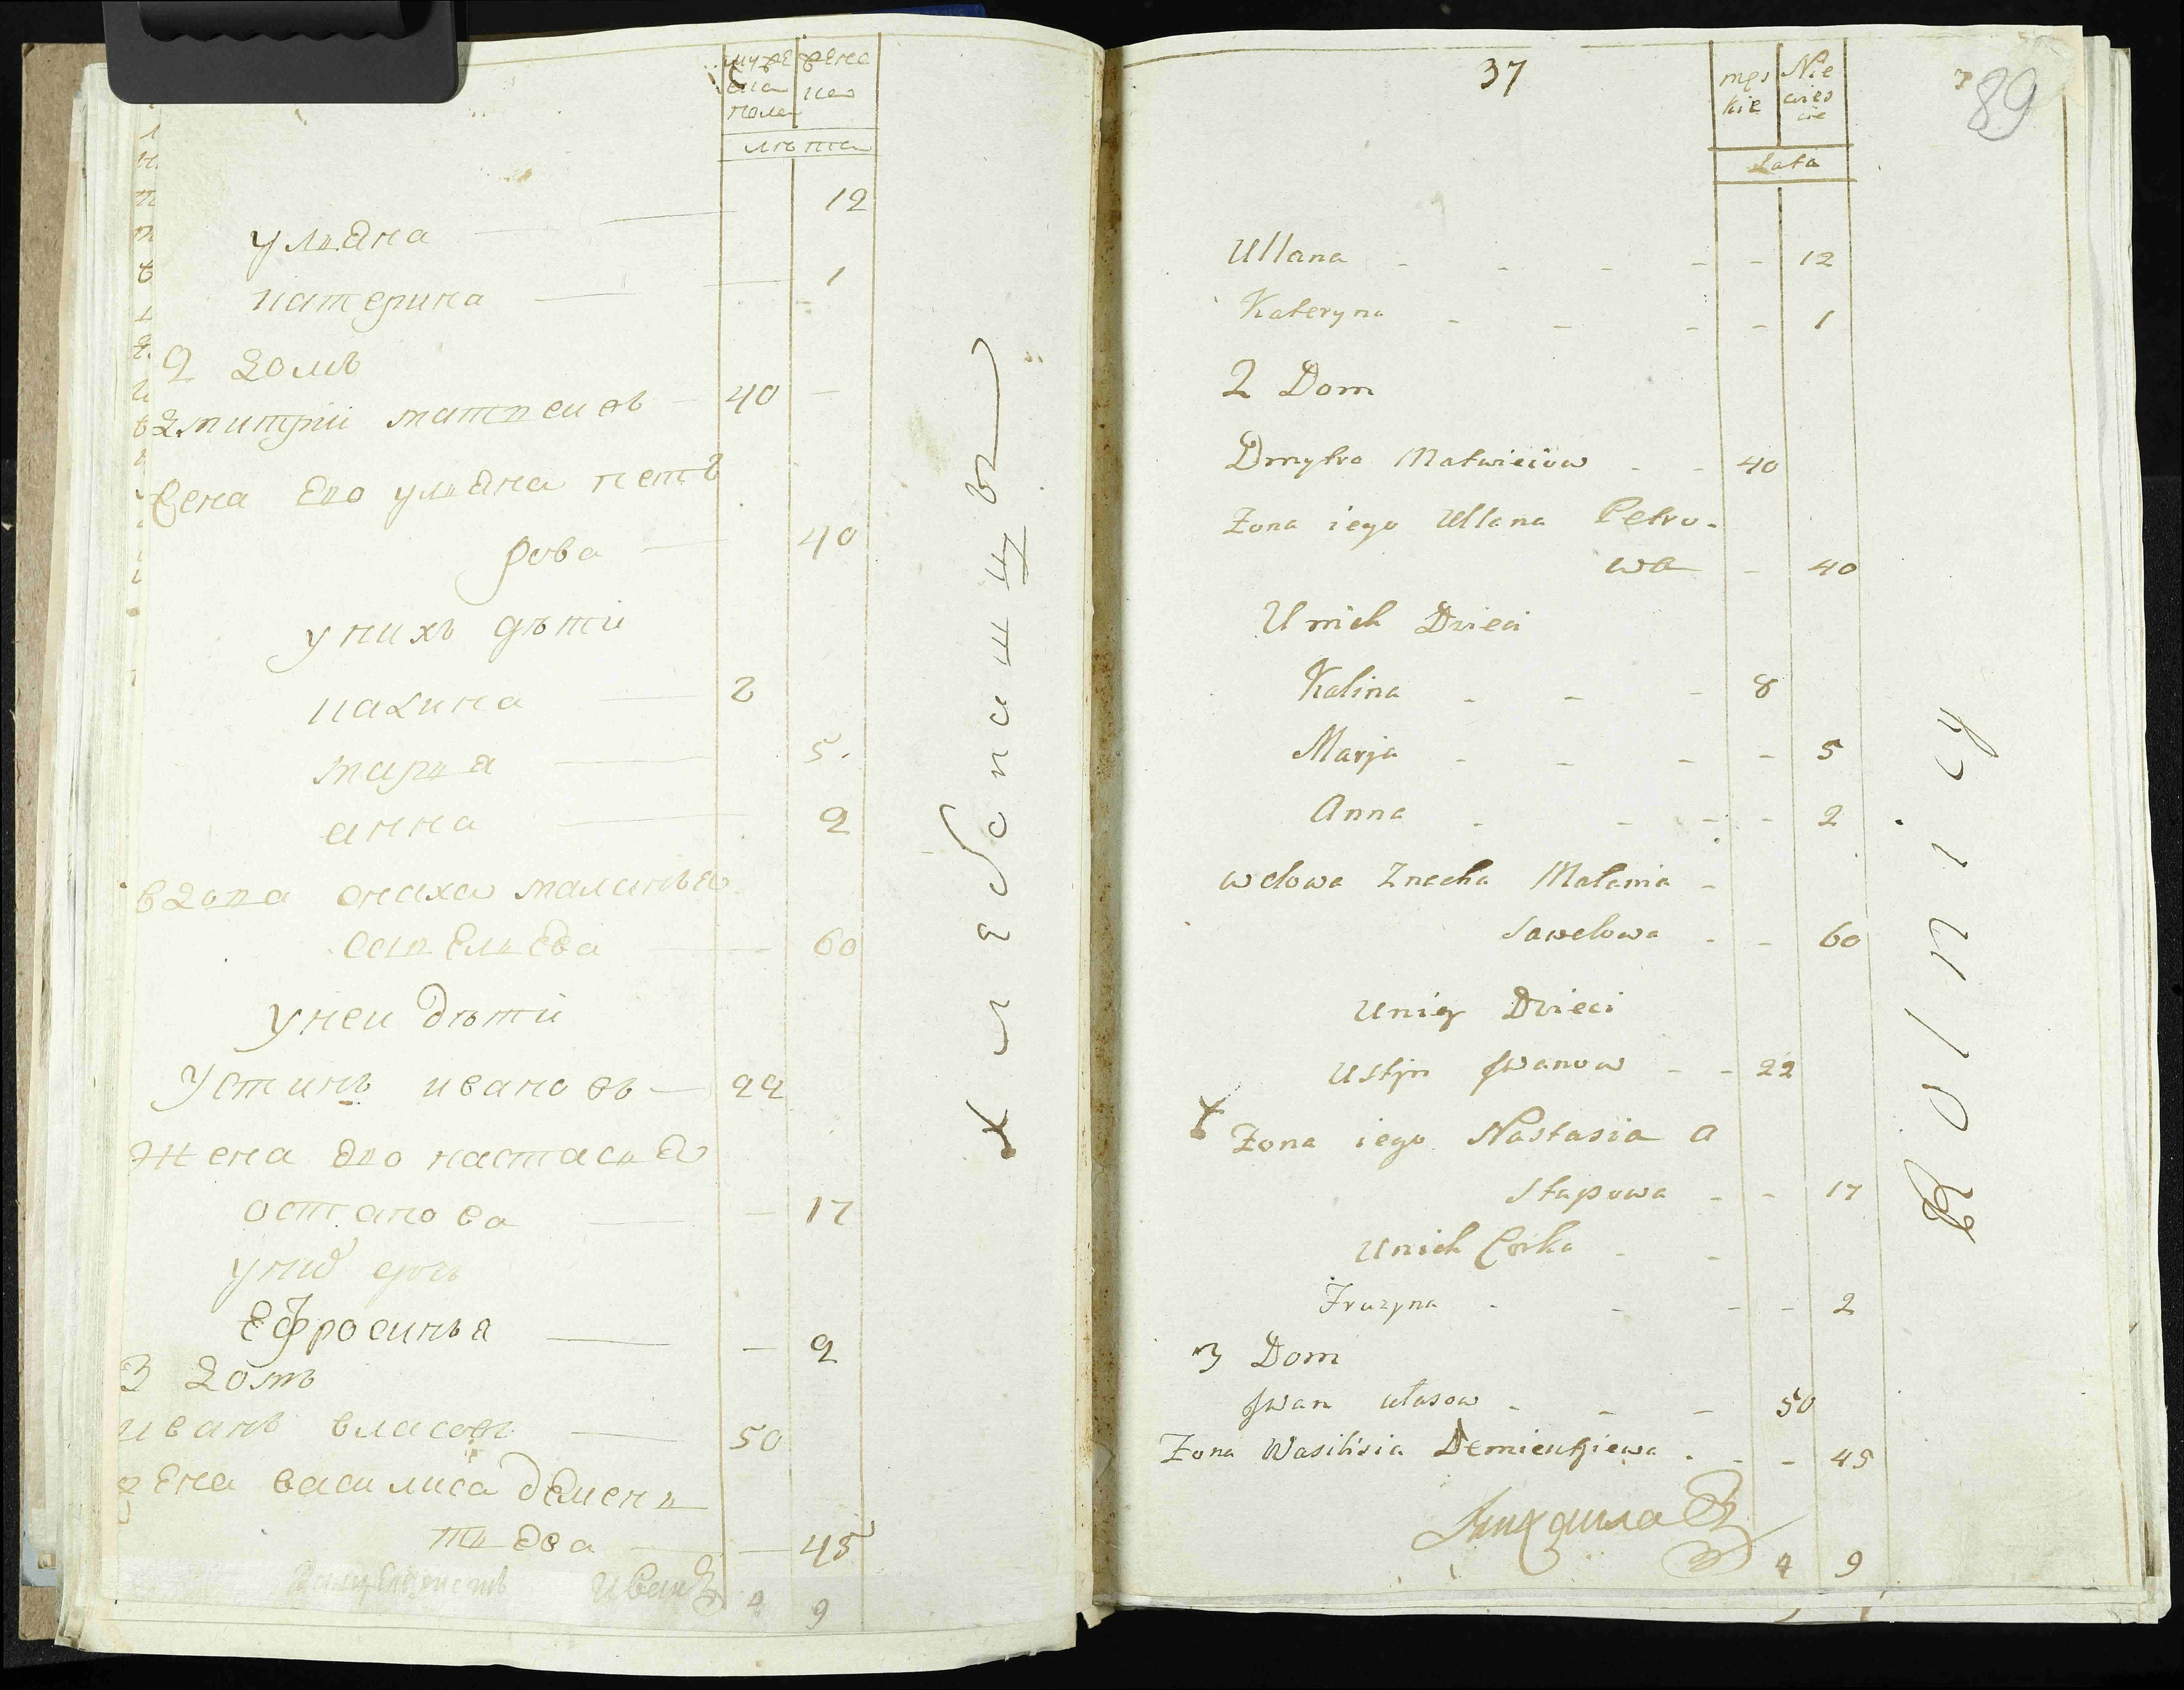 муже женс
ска ка
пола
лѣта
уляна — 12
катерина — 1
2 домъ
дмитрии матвеивъ — 40 —
жена его уляна пет
рова — 40
у нихъ дѣти
калина — 8
маря — 5.
анна — 2
вдова снаха маланья
савелева — 60
у неи дѣти
Устинъ ивановъ — 22
жена его настася
остапова — — 17
у них дочь
Ефросинья — — 2
3 домъ
иванъ власовъ — 50
жена василиса демен
тева — — 45
Иванъ 4 9
хлебопашцы
37
męs Nie
kie wieś
cie
Lata
89
Ullana - - - - - 12
Kateryna - - - - 1
2 Dom
Dmytro Matwieiow - - 40
Zona iego Ullana Petro-
wa - 40
U nich Dzieci
Kalina - - - 8
Marja - - - - 5
Anna - - - - 2
wdowa Znacha Małania -
Sawelowa - - 60
U niey Dzieci
Ustjn Jwanow - - 22
Zona iego Nastasia a
Stapowa - - 17
U nich Corka - -
Fruzyna - - - - 2
3 Dom
Jwan Własow - - - 50
Zona Wasilisia Demientjiewa - - - 45
4 9
Rolnicy